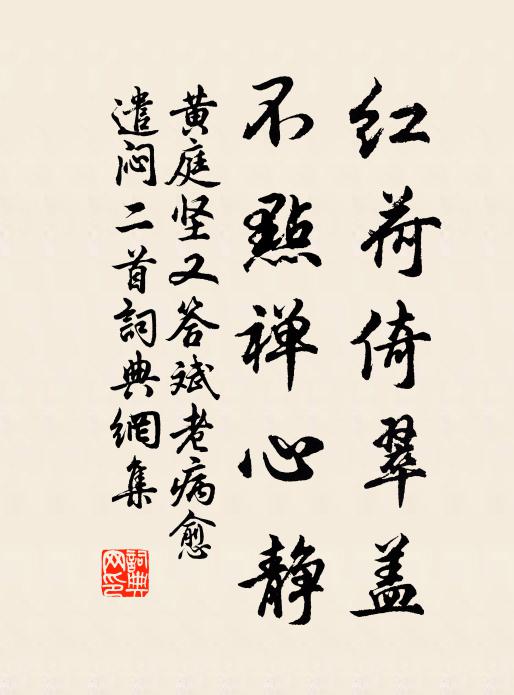 红荷倚翠盖
不點禅心静
黄庭坚又答斌老病愈
遣闷二首詞典網集
詞典
网印